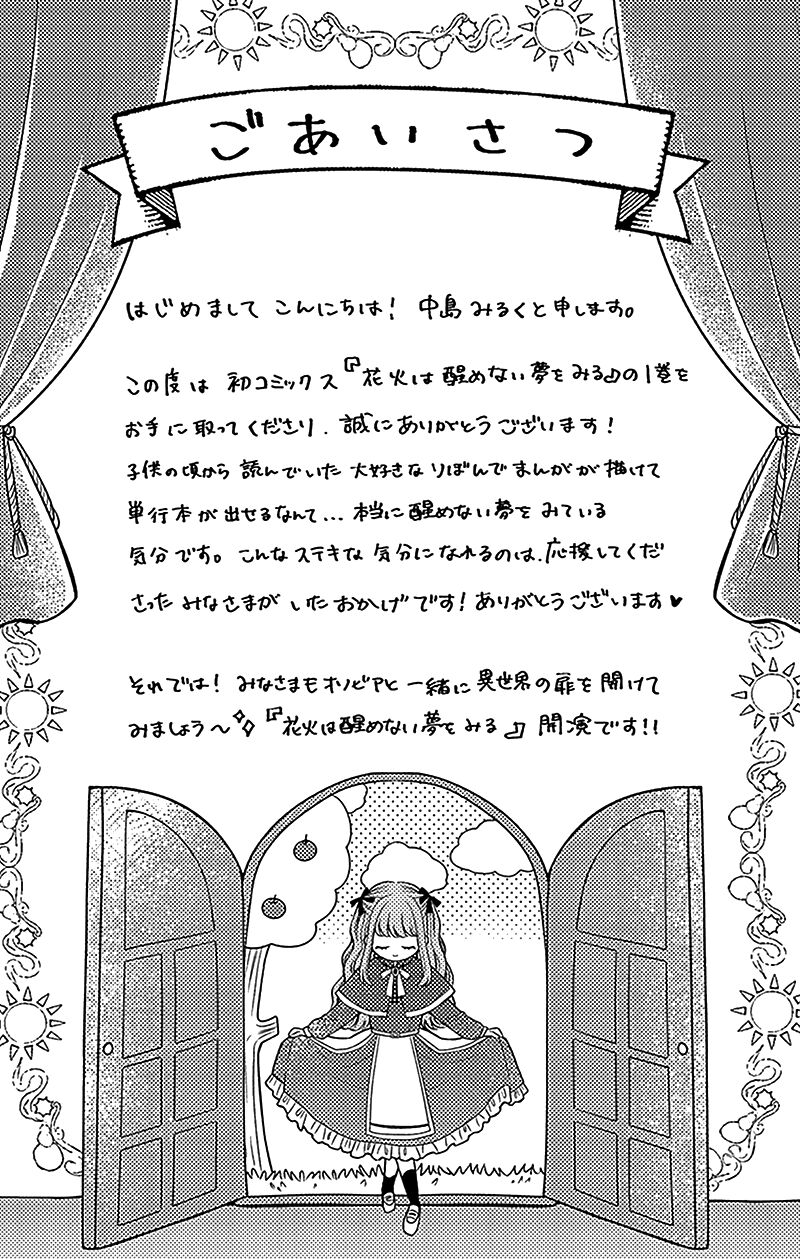 ごあいさつ
はじめまして こんにちは! 中島みるくと申します。
この度は 初コミックス『花火は醒めない夢をみる』の1巻を
お手に取ってくださり、誠にありがとうございます!
子供の頃から 読んでいた 大好きな りぼんで まんがが 描けて
単行本が 出せるなんて… 本当に 醒めない 夢を みている
気分です。こんな ステキな 気分になれるのは、応援してくだ
さった みなさまが いた おかげです! ありがとうございます♥
それでは! みなさまも オリビアと 一緒に 異世界の 扉を 開けて
みましょう〜 『花火は醒めない夢をみる』 開演です!!